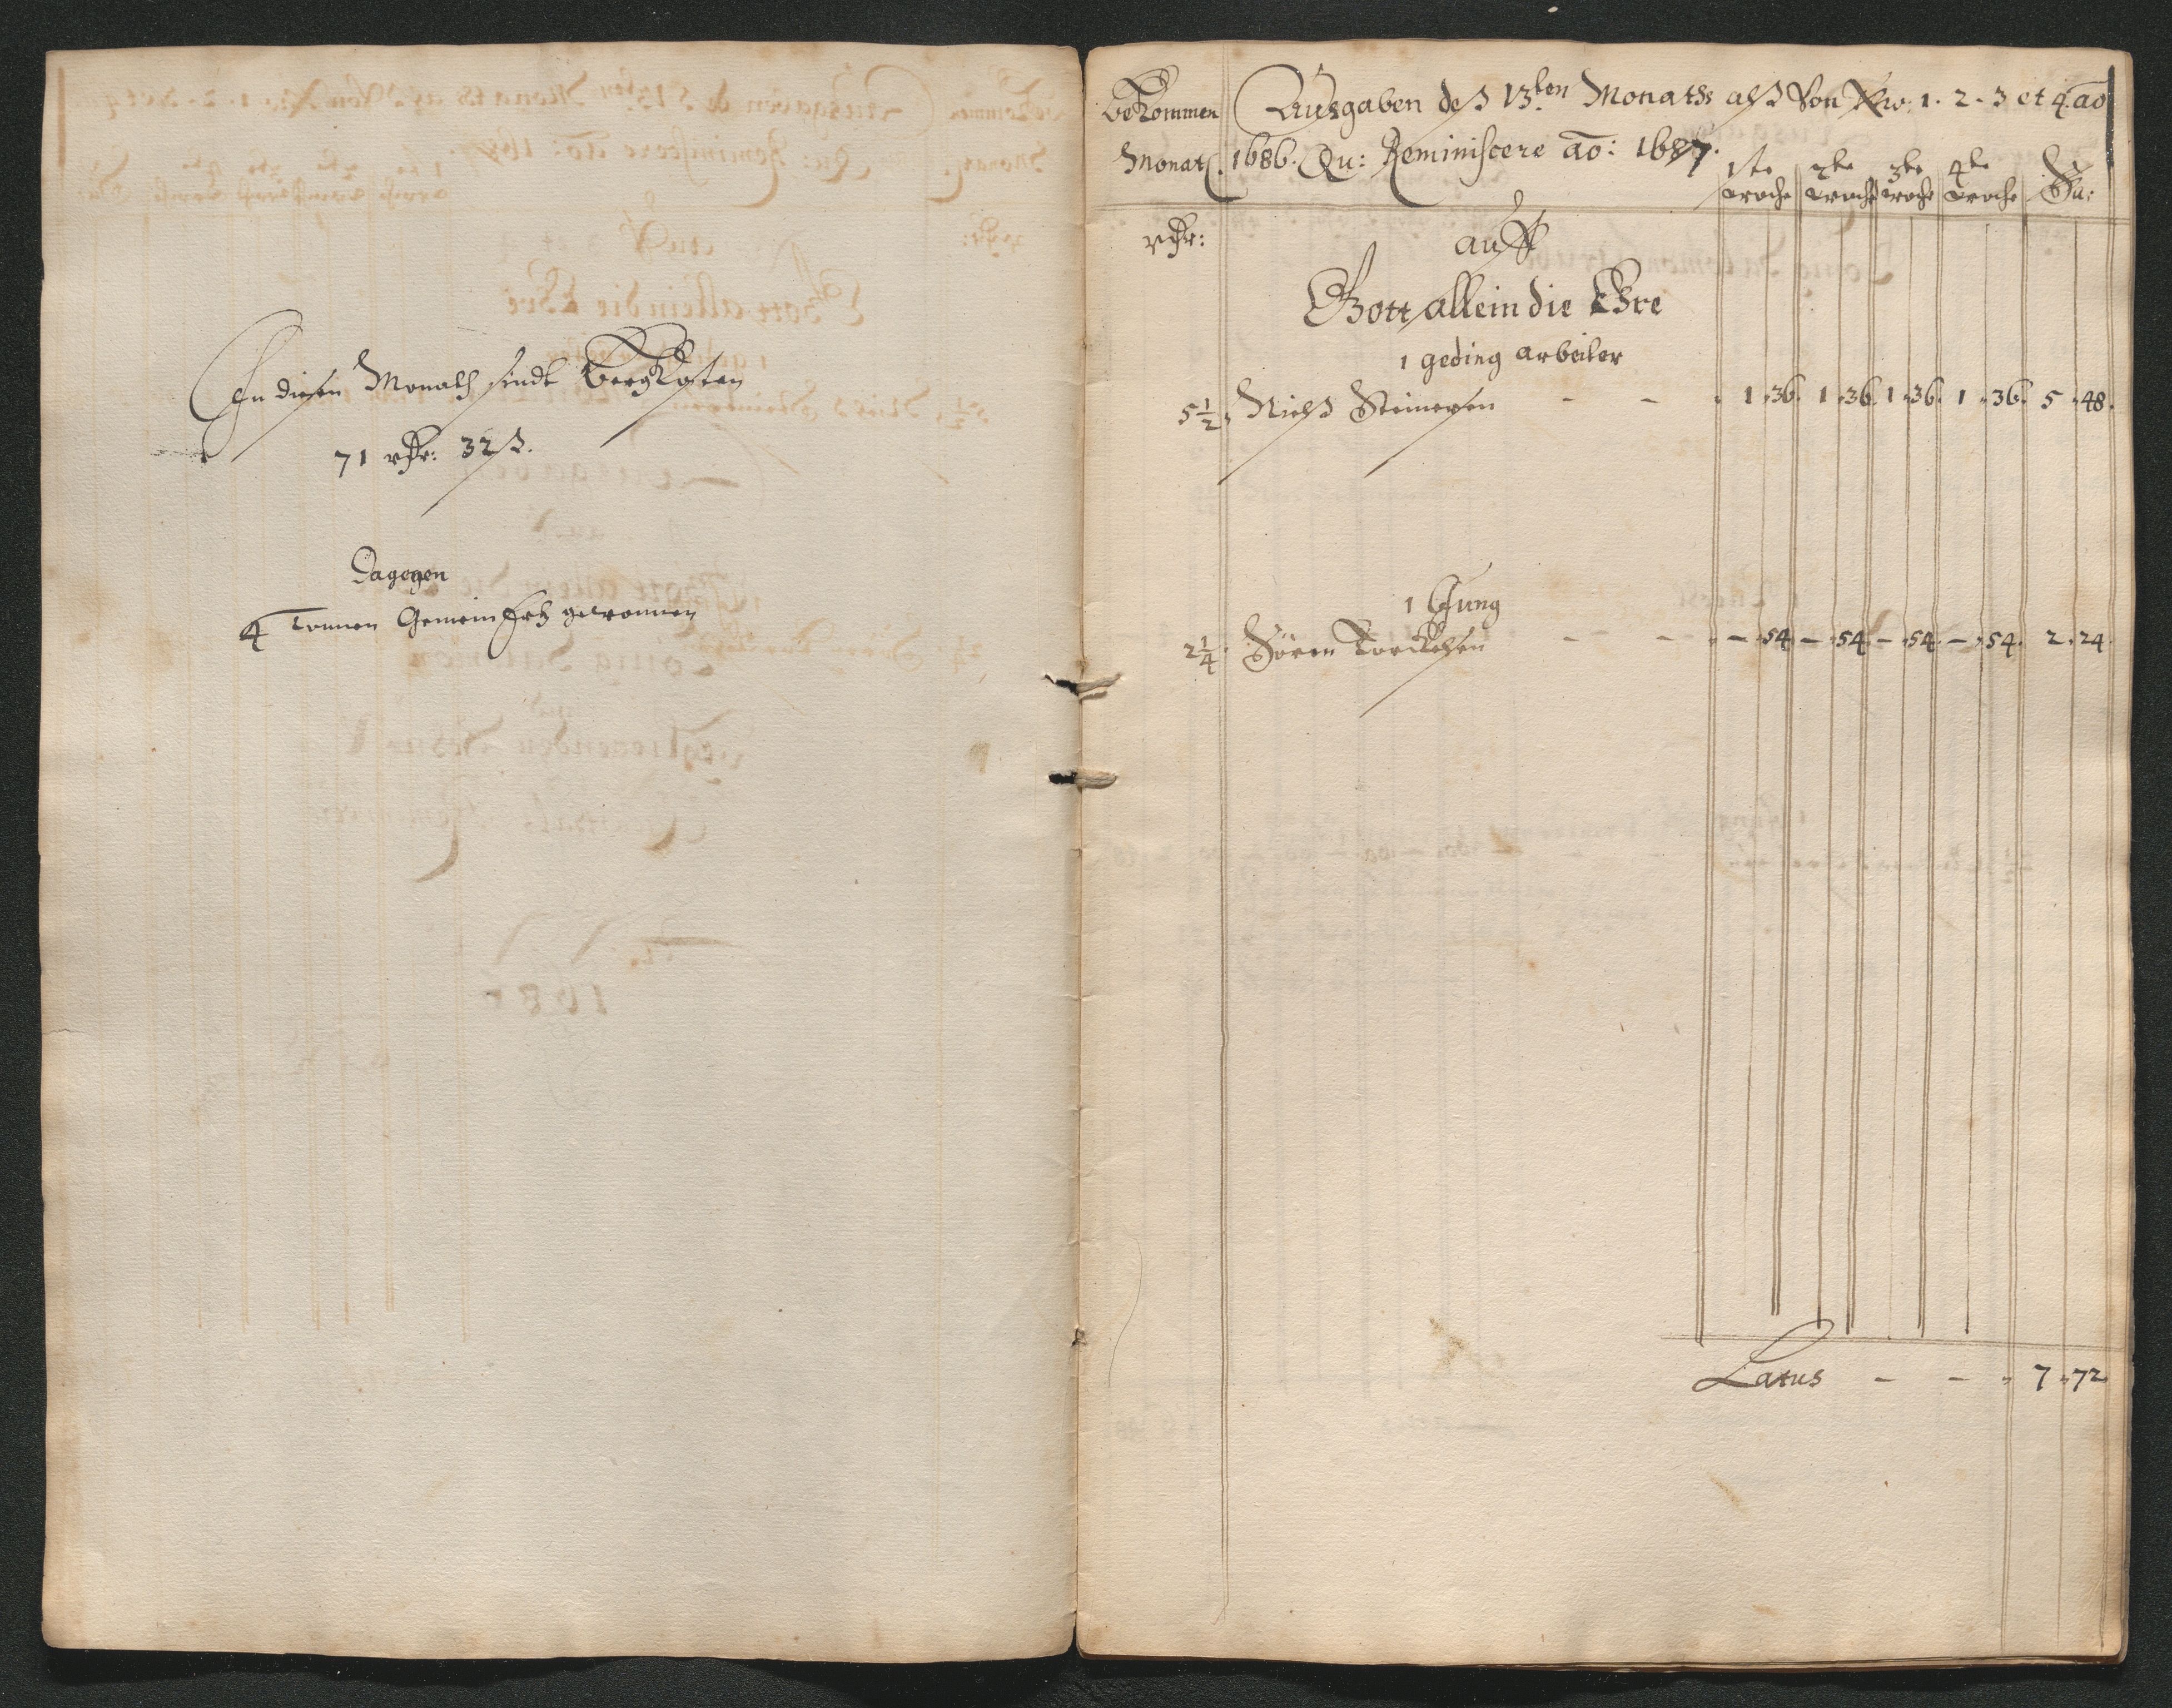 In diesen Monath sindt Bergkosten
71 rthr: 32 ß.
Dagegen
4 Tonnen Gemein Ertz gewonnen
Bekommen Monatl.
Ausgaben deß 13ten Monatß alß Von No: 1. 2. 3 et 4. ao
1686. Qu: Reminiscere ao: 1687.
1te Woche 2te Woche 3te Woche 4te Woche Su:
rthr: auff
Gott allein die Ehre
1 geding arbeiter
5 1/2. Nielß Steinersen - - . 1.36. 1.36. 1.36. 1.36. 5.48.
1 Jung
2 1/4. Sören Torckelsen - - - .54. - .54. - .54. - .54. 2.24
Latus - - . 7.72